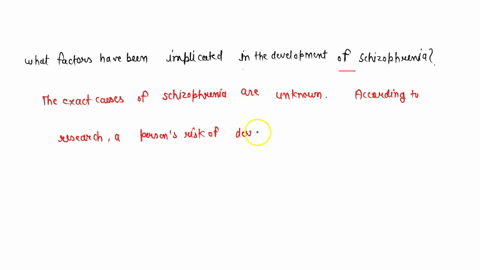 what factors have been implicated in the development of schizophrenia?
The exact causes of schizophrenia are unknown. According to
research, a person's risk of dev